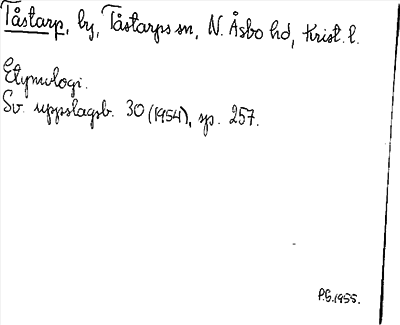 Tåstarp, by, Tåstarps sn, N. Åsbo hd, Krist. l.
Etymologi.
Sv. uppslagsb. 30 (1954), sp. 257.
P.G.1955.